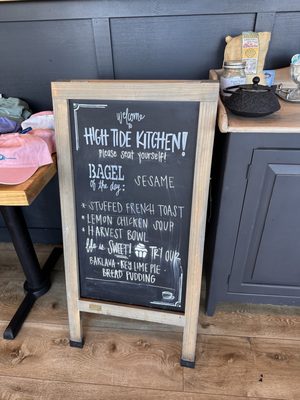 welcome
to
HIGH TIDE KITCHEN!
please seat yourself!
BAGEL
of the day:
SESAME
* STUFFED FRENCH TOAST
* LEMON CHICKEN SOUP
* HARVEST BOWL
Life is SWEET! TRY OUR
BAKLAVA • KEY LIME PIE •
BREAD PUDDING